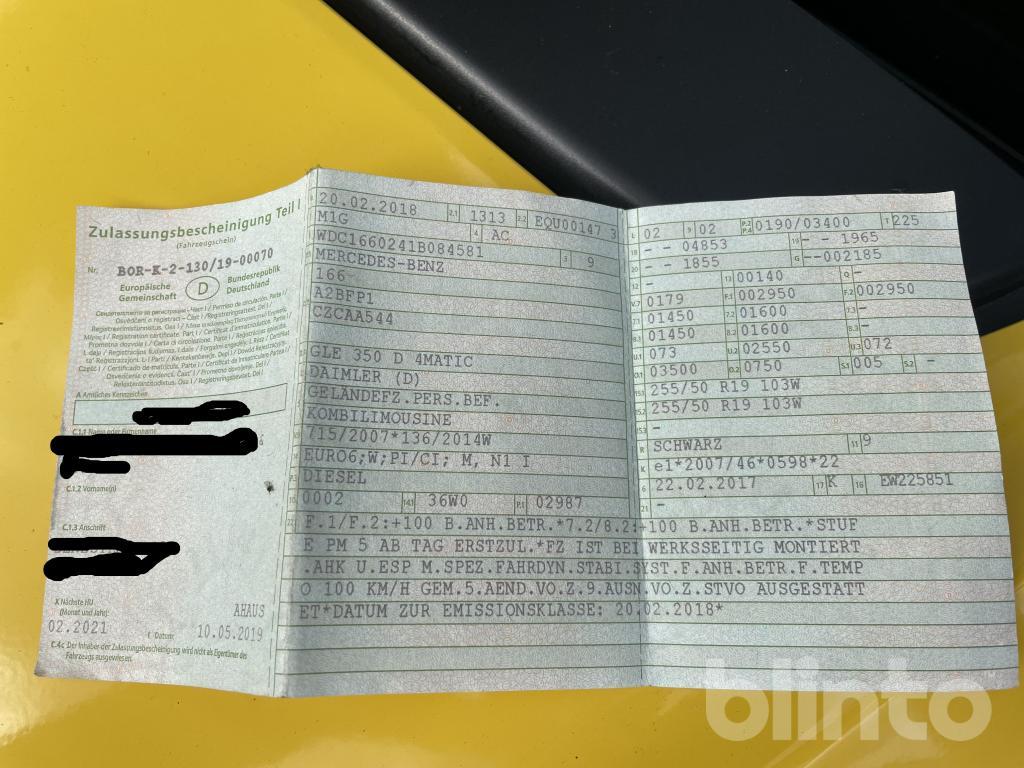 Zulassungsbescheinigung Teil I
(Fahrzeugschein)
Nr. BOR-K-2-130/19-00070
Europäische Gemeinschaft
D
Bundesrepublik Deutschland
A Amtliches Kennzeichen
C.1.1 Name oder Firmenname
C.1.2 Vorname(n)
C.1.3 Anschrift
X Nächste HU
(Monat und Jahr)
02.2021
AHAUS
I Datum:
10.05.2019
C.4c Der Inhaber der Zulassungsbescheinigung wird nicht als Eigentümer des Fahrzeugs ausgewiesen.
20.02.2018 2.1 1313 2.2 EQU00147 3
M1G 4 AC
WDC1660241B084581 3 9
MERCEDES-BENZ
166
A2BFP1
CZCAA544
GLE 350 D 4MATIC
DAIMLER (D)
GELANDEFZ.PERS.BEF.
KOMBILIMOUSINE
715/2007*136/2014W
EURO6;W;PI/CI; M, N1 I
DIESEL
0002 14.1 36W0 P.1 02987
L 02 9 02 P.2 P.4 0190/03400 T 225
18 - - 04853 19 - - 1965
20 - - 1855 G --002185
12 - 13 00140 Q -
V.7 0179 F.1 002950 F.2 002950
7.1 01450 7.2 01600 7.3 -
8.1 01450 8.2 01600 8.3 -
U.1 073 U.2 02550 U.3 072
O.1 03500 O.2 0750 S.1 005 S.2 -
15.1 255/50 R19 103W
15.2 255/50 R19 103W
15.3 -
R SCHWARZ 11 9
K e1*2007/46*0598*22
6 22.02.2017 17 K 16 EW225851
21 -
22 F.1/F.2:+100 B.ANH.BETR.*7.2/8.2:+100 B.ANH.BETR.*STUF
E PM 5 AB TAG ERSTZUL.*FZ IST BEI WERKSSEITIG MONTIERT
.AHK U.ESP M.SPEZ.FAHRDYN.STABI.SYST.F.ANH.BETR.F.TEMP
O 100 KM/H GEM.5.AEND.VO.Z.9.AUSN.VO.Z.STVO AUSGESTATT
ET*DATUM ZUR EMISSIONSKLASSE: 20.02.2018*
blinto